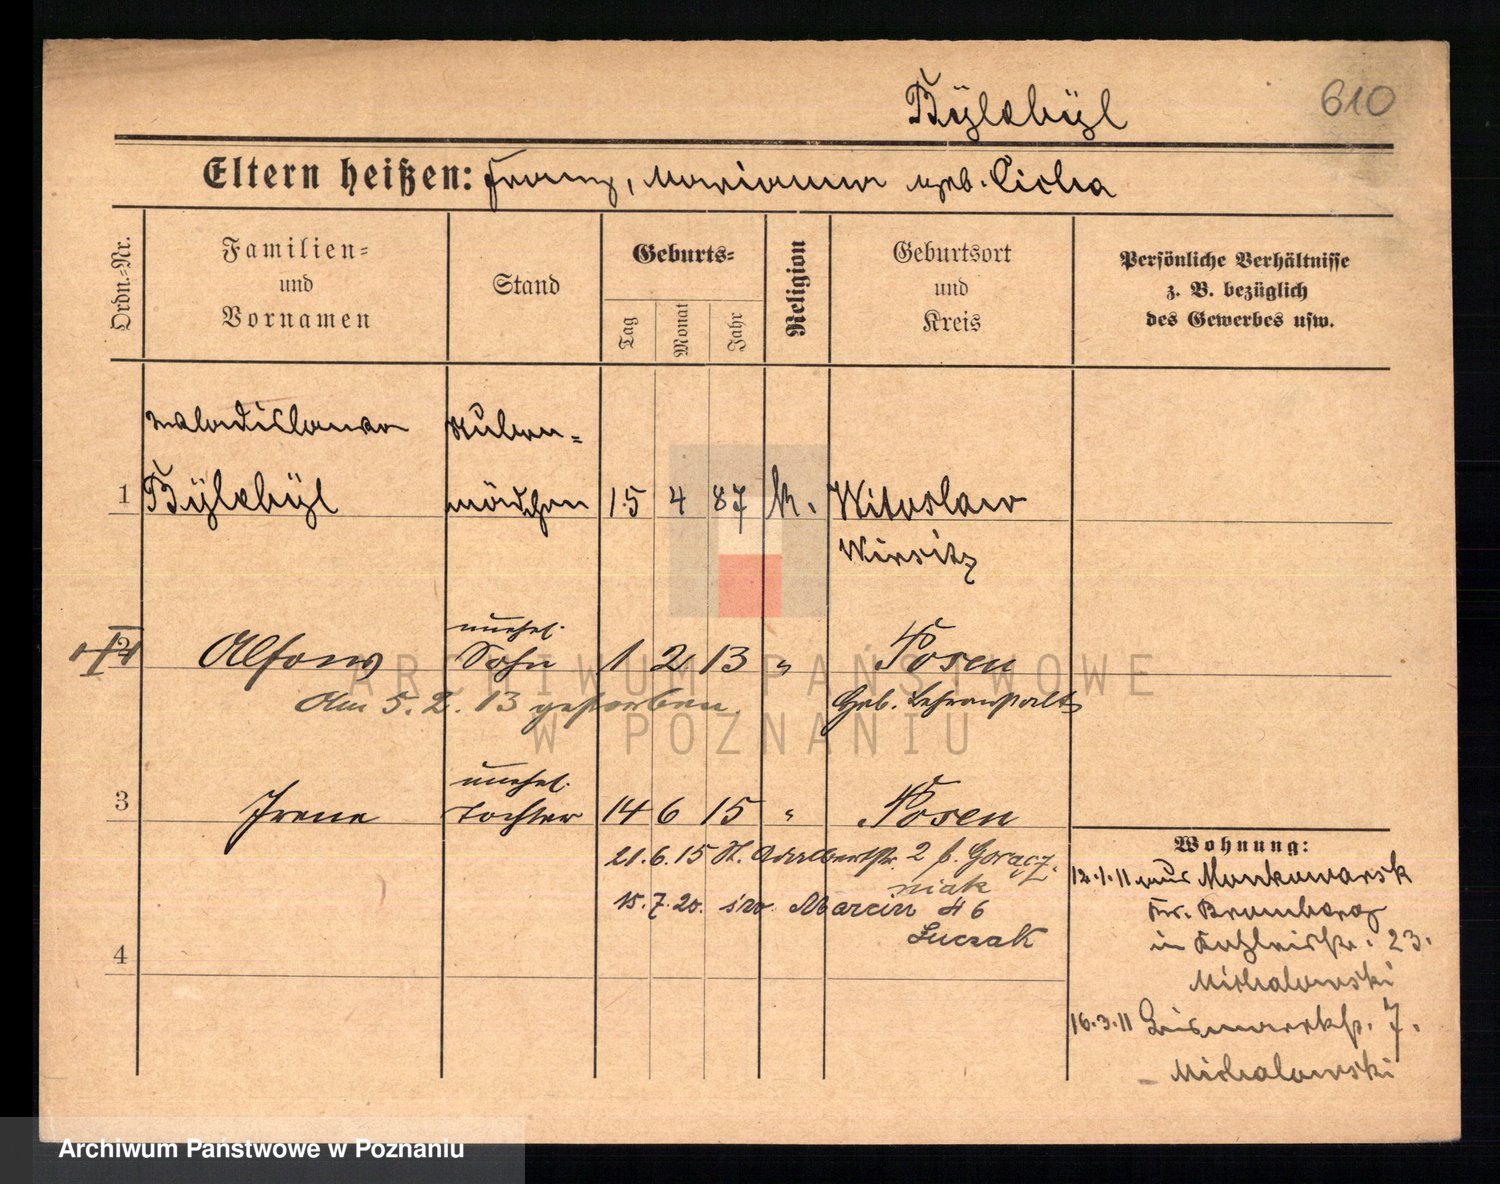 610
Bÿlebÿl
Eltern heißen: Franz, Marianna geb. Cicha
Ordn.=Nr.
Familien=
und
Vornamen
Stand
Geburts=
Tag
Monat
Jahr
Religion
Geburtsort
und
Kreis
Persönliche Verhältnisse
z. B. bezüglich
des Gewerbes usw.
Wladislawa
Stuben=
1 Bÿlebÿl mädchen 15 4 87 k. Witoslaw
Wirsitz
unehel.
2 Alfons Sohn 1 2 13 " Posen
Am 5. 2. 13 gestorben. Geb. Lehranstalt
unehel.
3 Irene Tochter 14 6 15 " Posen
21.6.15 St. Adalbertstr. 2 b. Goracz
niak
15.7.20. św. Marcin 46
Luczak
4
Wohnung:
12.1.11 aus Monkowarsk
Kr. Bromberg
in 23.
Michalowski
16.3.11 Bismarckstr. 7.
Michalowski
ARCHIWUM PAŃSTWOWE
W POZNANIU
Archiwum Państwowe w Poznaniu